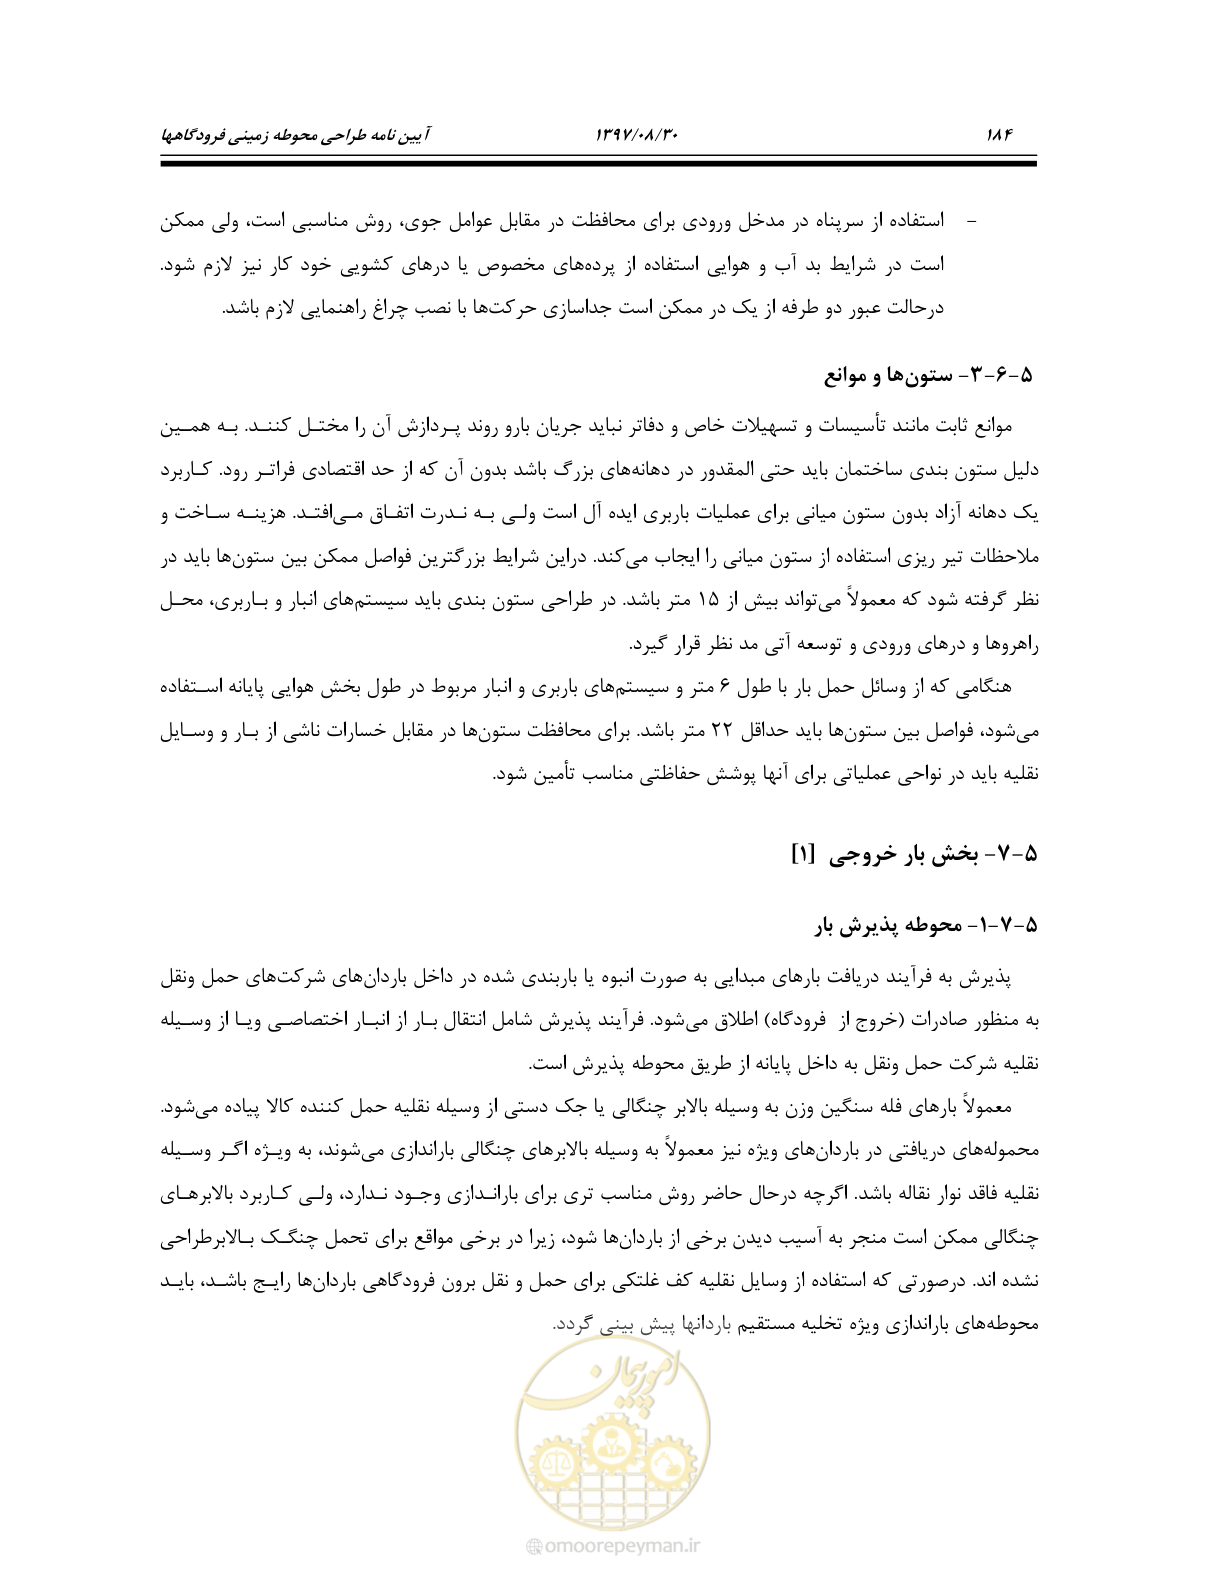 ۱۸۴ ۱۳۹۷/۰۸/۳۰ آیین نامه طراحی محوطه زمینی فرودگاهها
- استفاده از سرپناه در مدخل ورودی برای محافظت در مقابل عوامل جوی، روش مناسبی است، ولی ممکن
است در شرایط بد آب و هوایی استفاده از پرده‌های مخصوص یا درهای کشویی خود کار نیز لازم شود.
درحالت عبور دو طرفه از یک در ممکن است جداسازی حرکت‌ها با نصب چراغ راهنمایی لازم باشد.
۵-۶-۳- ستون‌ها و موانع
موانع ثابت مانند تأسیسات و تسهیلات خاص و دفاتر نباید جریان بارو روند پـردازش آن را مختـل کننـد. بـه همـین
دلیل ستون بندی ساختمان باید حتی المقدور در دهانه‌های بزرگ باشد بدون آن که از حد اقتصادی فراتـر رود. کـاربرد
یک دهانه آزاد بدون ستون میانی برای عملیات باربری ایده آل است ولـی بـه نـدرت اتفـاق مـی‌افتـد. هزینـه سـاخت و
ملاحظات تیر ریزی استفاده از ستون میانی را ایجاب می‌کند. دراین شرایط بزرگترین فواصل ممکن بین ستون‌ها باید در
نظر گرفته شود که معمولاً می‌تواند بیش از ۱۵ متر باشد. در طراحی ستون بندی باید سیستم‌های انبار و بـاربری، محـل
راهروها و درهای ورودی و توسعه آتی مد نظر قرار گیرد.
هنگامی که از وسائل حمل بار با طول ۶ متر و سیستم‌های باربری و انبار مربوط در طول بخش هوایی پایانه اسـتفاده
می‌شود، فواصل بین ستون‌ها باید حداقل ۲۲ متر باشد. برای محافظت ستون‌ها در مقابل خسارات ناشی از بـار و وسـایل
نقلیه باید در نواحی عملیاتی برای آنها پوشش حفاظتی مناسب تأمین شود.
۵-۷- بخش بار خروجی [۱]
۵-۷-۱- محوطه پذیرش بار
پذیرش به فرآیند دریافت بارهای مبدایی به صورت انبوه یا باربندی شده در داخل باردان‌های شرکت‌های حمل ونقل
به منظور صادرات (خروج از فرودگاه) اطلاق می‌شود. فرآیند پذیرش شامل انتقال بـار از انبـار اختصاصـی ویـا از وسـیله
نقلیه شرکت حمل ونقل به داخل پایانه از طریق محوطه پذیرش است.
معمولاً بارهای فله سنگین وزن به وسیله بالابر چنگالی یا جک دستی از وسیله نقلیه حمل کننده کالا پیاده می‌شود.
محموله‌های دریافتی در باردان‌های ویژه نیز معمولاً به وسیله بالابرهای چنگالی باراندازی می‌شوند، به ویـژه اگـر وسـیله
نقلیه فاقد نوار نقاله باشد. اگرچه درحال حاضر روش مناسب تری برای بارانـدازی وجـود نـدارد، ولـی کـاربرد بالابرهـای
چنگالی ممکن است منجر به آسیب دیدن برخی از باردان‌ها شود، زیرا در برخی مواقع برای تحمل چنگـک بـالابرطراحی
نشده اند. درصورتی که استفاده از وسایل نقلیه کف غلتکی برای حمل و نقل برون فرودگاهی باردان‌ها رایـج باشـد، بایـد
محوطه‌های باراندازی ویژه تخلیه مستقیم باردانها پیش بینی گردد.
امور پیمان
omoorepeyman.ir